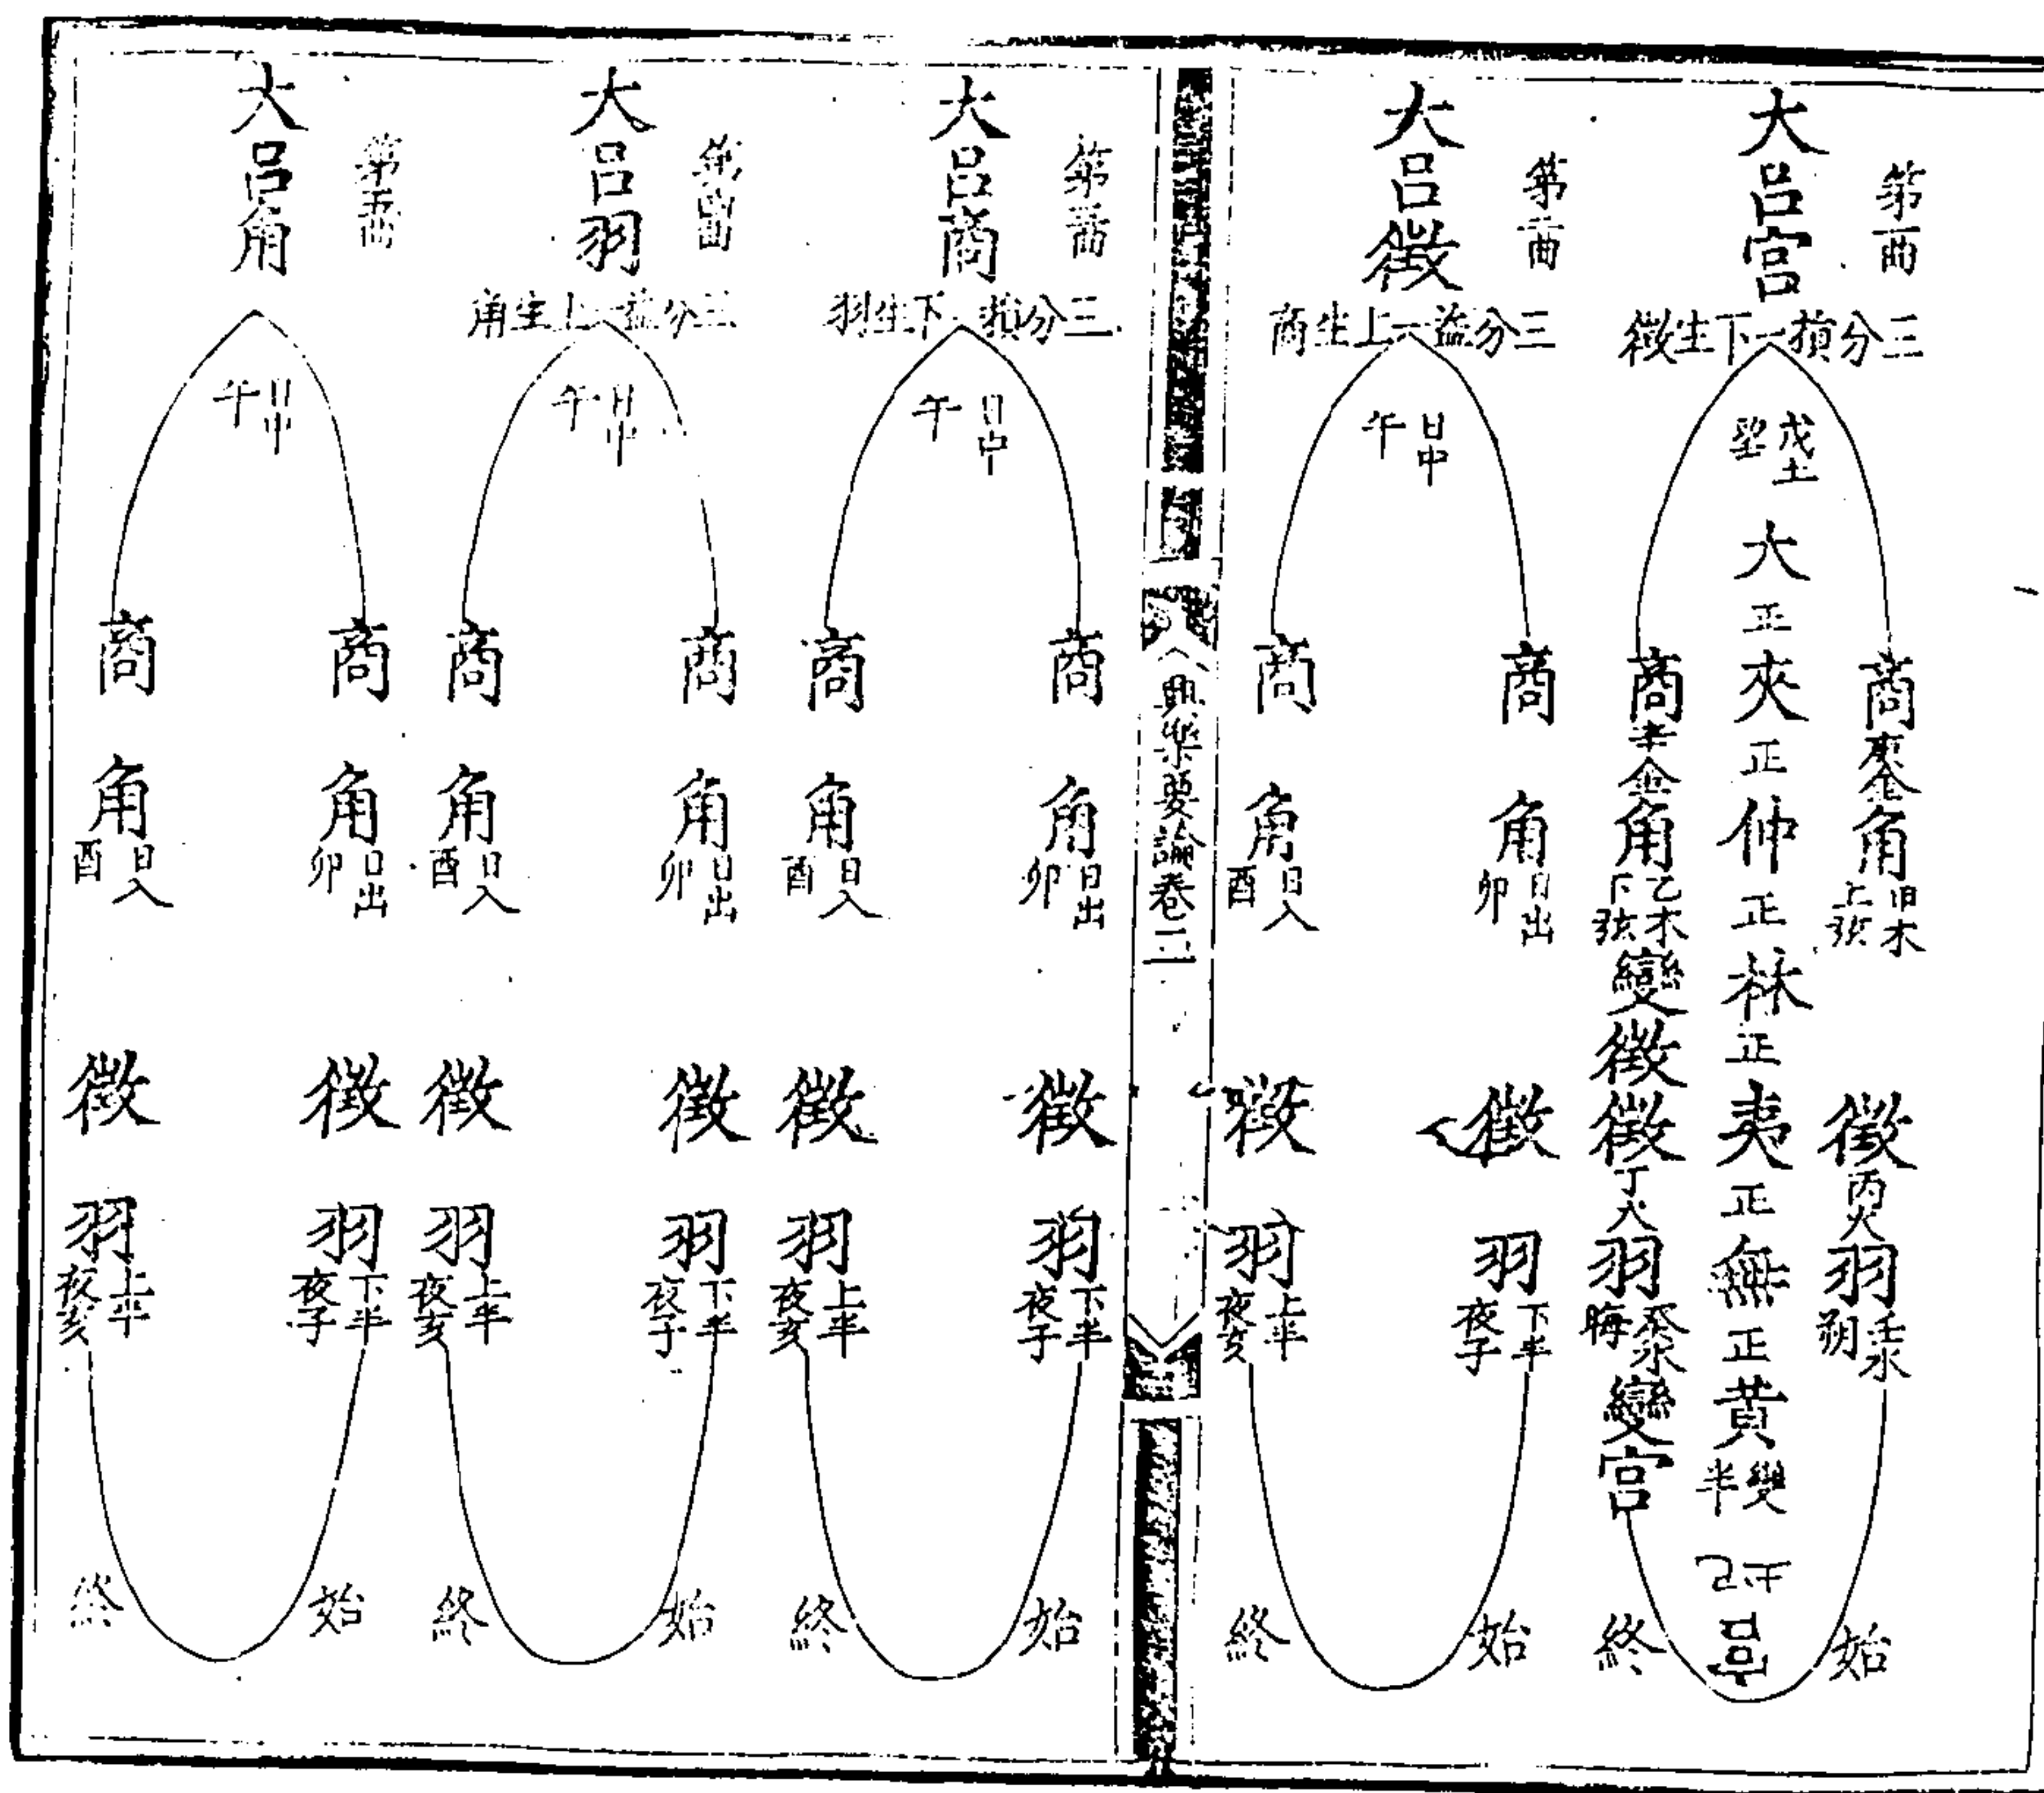 第一曲
大呂宮
三分損一下生徵
戊土
望
商庚金角甲木上弦
徵丙火羽壬水朔
始
大正夾正仲正林正夷正無正黃變半
商辛金角乙木下弦變徵徵丁火羽癸水晦變宮
終
第二曲
大呂徵
三分益一上生商
日中
午
商
角日出卯
徵
羽下半夜子
始
商
角日入酉
徵
羽上半夜亥
終
典樂要論卷二
第三曲
大呂商
三分損一下生羽
日中
午
商
角日出卯
徵
羽下半夜子
始
商
角日入酉
徵
羽上半夜亥
終
第四曲
大呂羽
三分益一上生角
日中
午
商
角日出卯
徵
羽下半夜子
始
商
角日入酉
徵
羽上半夜亥
終
第五曲
大呂角
日中
午
商
角日出卯
徵
羽下半夜子
始
商
角日入酉
徵
羽上半夜亥
終